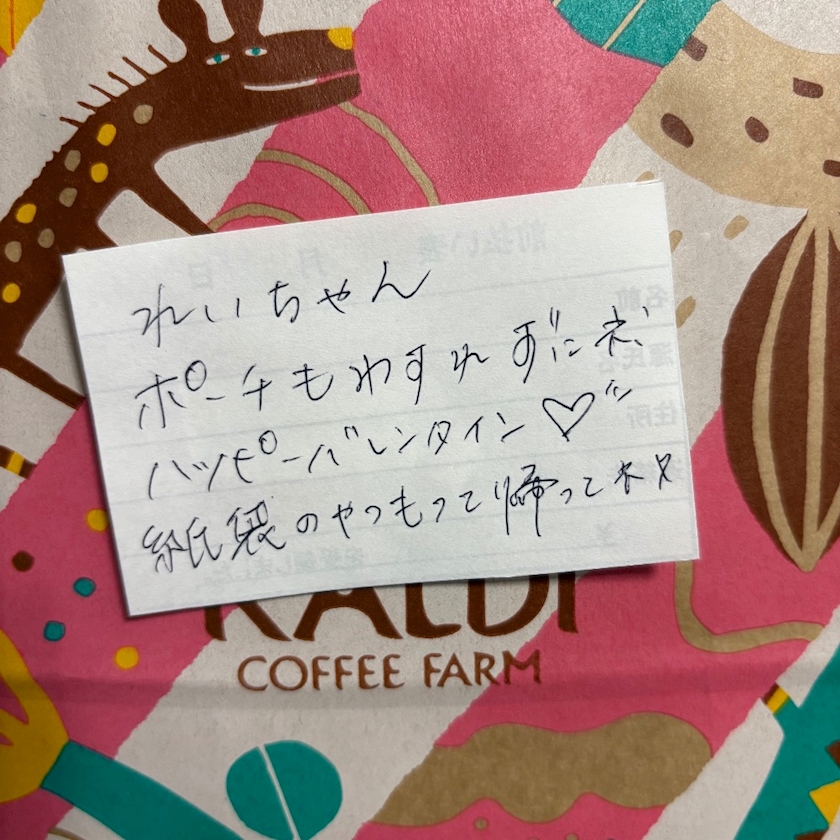 れいちゃん
ポーチもわすれずにネ
ハッピーバレンタイン♡
紙袋のやつもって帰ってネ
KALDI
COFFEE FARM